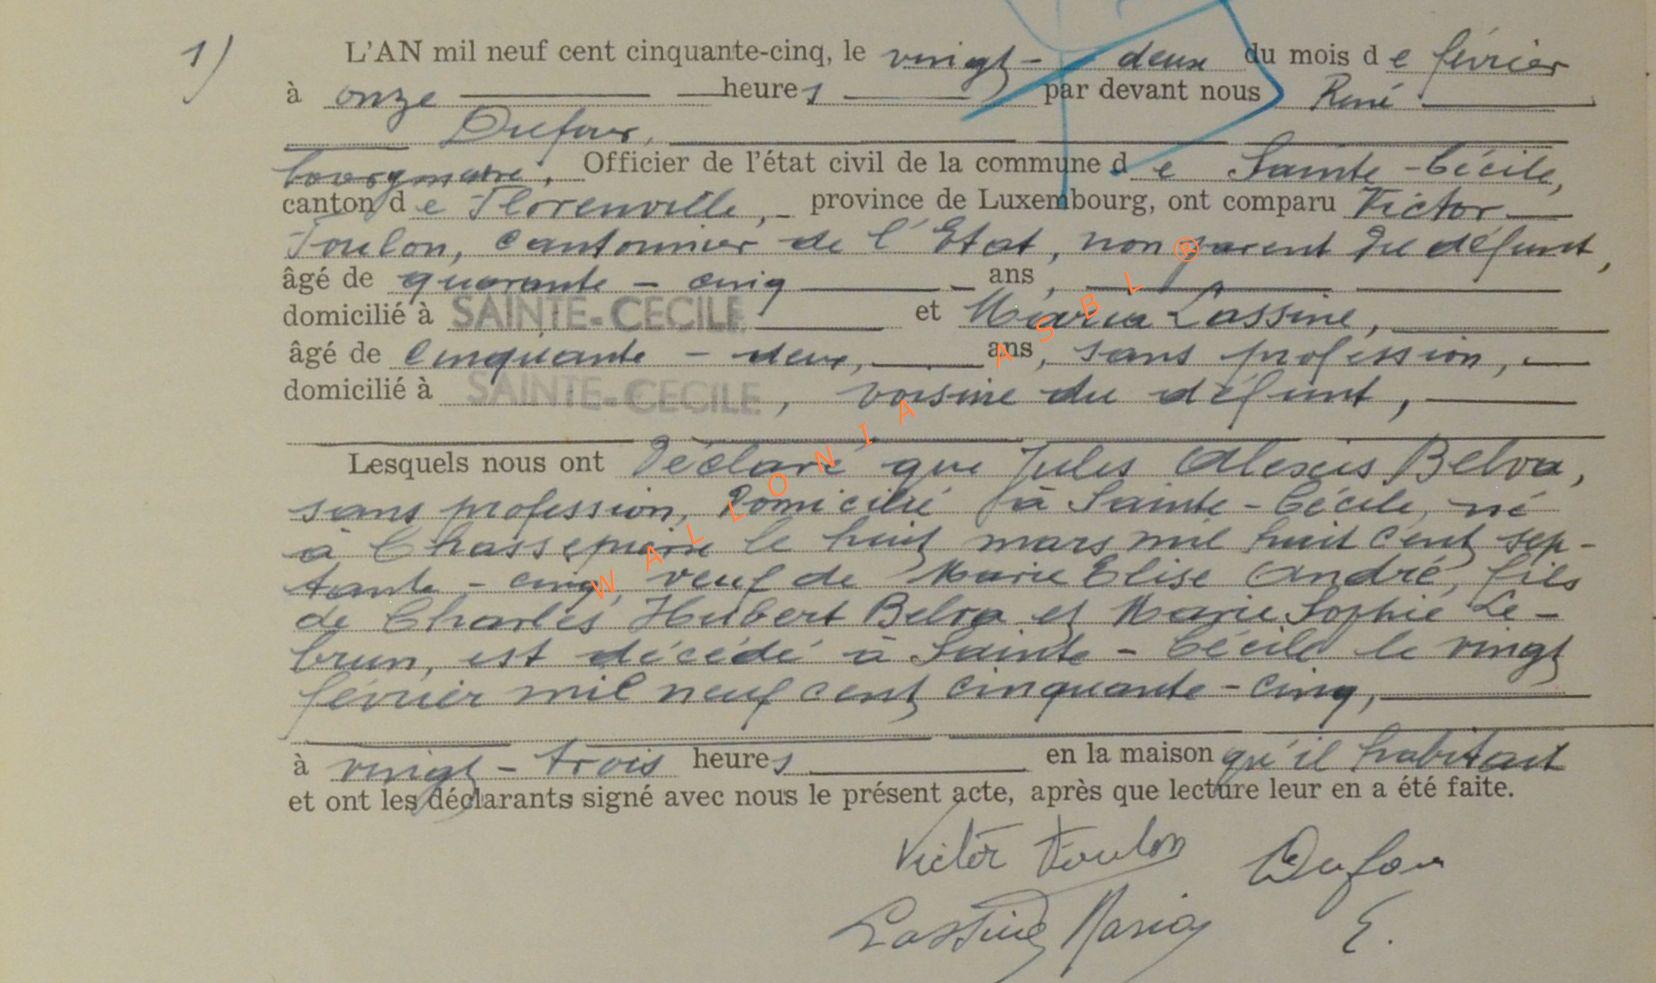 1) L'AN mil neuf cent cinquante-cinq, le vingt-deux du mois de février
à onze heures par devant nous René
Dufour,
bourgmestre, Officier de l'état civil de la commune de Sainte-Cécile,
canton de Florenville, province de Luxembourg, ont comparu Victor
Toulon, cantonnier de l'Etat, non parent du défunt,
âgé de quarante-cinq ans,
domicilié à SAINTE-CECILE et Maria Lassine,
âgé de cinquante-deux, ans, sans profession,
domicilié à SAINTE-CECILE, voisine du défunt,
Lesquels nous ont déclaré que Jules Alexis Belva,
sans profession, domicilié à Sainte-Cécile, né
à Chassepierre le huit mars mil huit cent sep-
tante-cinq, veuf de Marie Elise André, fils
de Charles Hubert Belva et Marie Sophie Le-
brun, est décédé à Sainte-Cécile le vingt
février mil neuf cent cinquante-cinq,
à vingt-trois heures en la maison qu'il habitait
et ont les déclarants signé avec nous le présent acte, après que lecture leur en a été faite.
Victor Toulon Dufour
Lassine Maria E.
WALLONIA ASBL ®